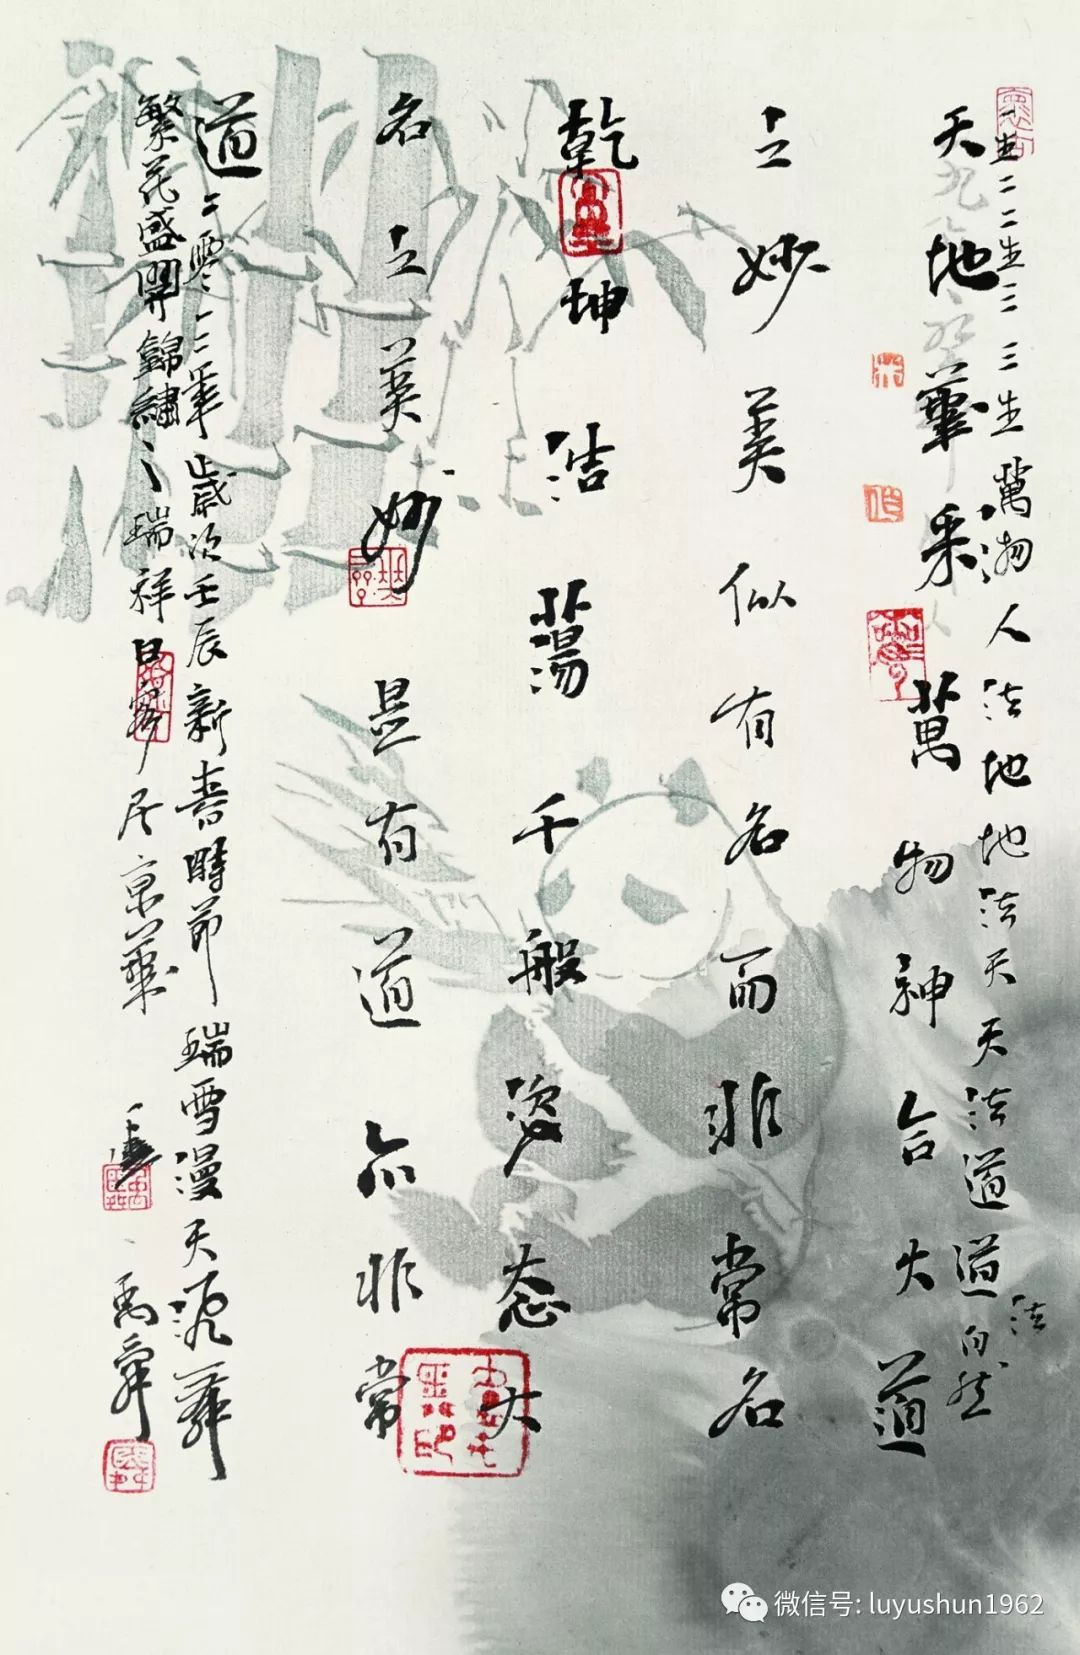 一生二二生三三生萬物人法地地法天天法道道法自然
天地華采萬物神合大道
之妙美似有名而非常名
乾坤浩蕩千般姿态大
名之美妙是有道亦非常
道二零一二年歲次壬辰新春時節瑞雪漫天飛舞
繁花盛開錦繡之瑞祥日寫居京華
禹舜
微信号: luyushun1962